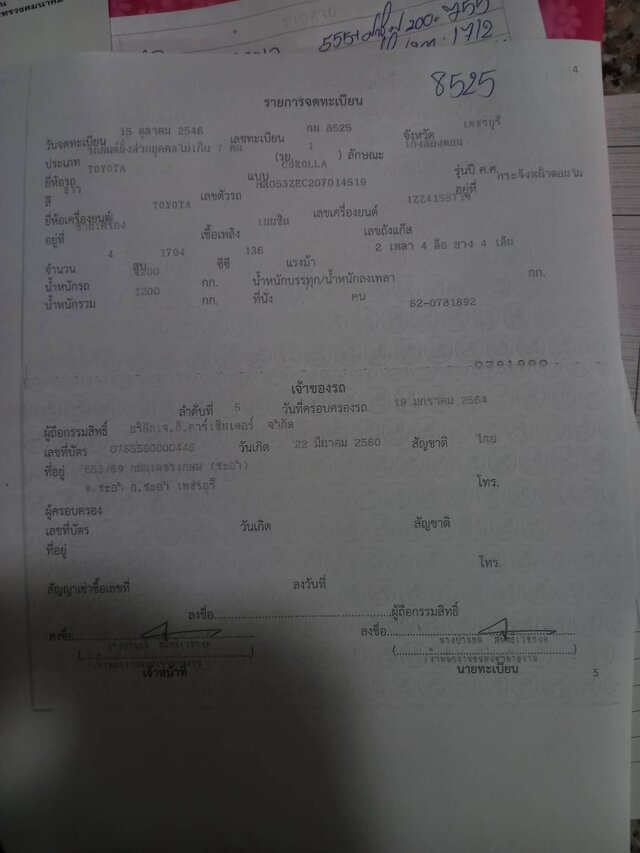 5554
200.
755
1712
8525
4
รายการจดทะเบียน
วันจดทะเบียน 15 ตุลาคม 2546 เลขทะเบียน กน 8525 จังหวัด เพชรบุรี
ประเภท รถยนต์นั่งส่วนบุคคลไม่เกิน 7 คน (รย. 1 ) ลักษณะ เก๋งสองตอน
ยี่ห้อรถ TOYOTA แบบ COROLLA รุ่นปี ค.ศ.
สี ขาว เลขตัวรถ MR053ZEC207014519 อยู่ที่ กระจังหน้าตอนใน
ยี่ห้อเครื่องยนต์ TOYOTA เลขเครื่องยนต์
อยู่ที่ เชื้อเพลิง เบนซิน เลขถังแก๊ส
จำนวน 4 สูบ 1794 ซีซี 136 แรงม้า 2 เพลา 4 ล้อ ยาง 4 เส้น
น้ำหนักรถ 1200 กก. น้ำหนักบรรทุก/น้ำหนักลงเพลา กก.
น้ำหนักรวม 1200 กก. ที่นั่ง คน 62-0781892
เจ้าของรถ
ลำดับที่ 5 วันที่ครอบครองรถ 19 มกราคม 2564
ผู้ถือกรรมสิทธิ์ บริษัทเจ.ที.คาร์เซ็นเตอร์ จำกัด
เลขที่บัตร 0765560000445 วันเกิด 22 มีนาคม 2560 สัญชาติ ไทย
ที่อยู่ 653/69 ถนนเพชรเกษม (ชะอำ)
ต.ชะอำ อ.ชะอำ เพชรบุรี โทร.
ผู้ครอบครอง
เลขที่บัตร วันเกิด สัญชาติ
ที่อยู่
โทร.
สัญญาเช่าซื้อเลขที่ ลงวันที่
ลงชื่อ ผู้ถือกรรมสิทธิ์
ลงชื่อ ลงชื่อ
( ) ( )
เจ้าหน้าที่ นายทะเบียน
5